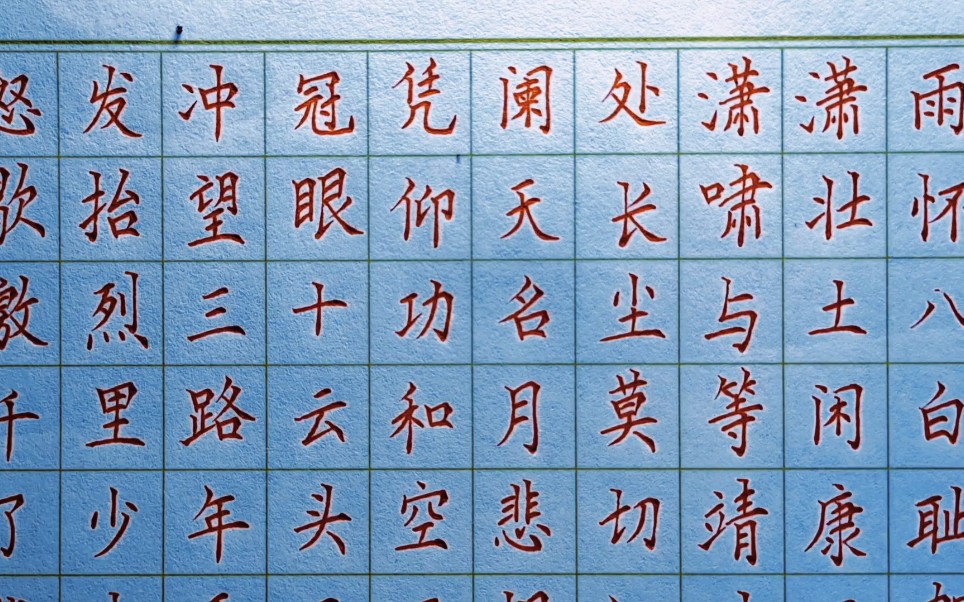 怒发冲冠凭阑处潇潇雨
歇抬望眼仰天长啸壮怀
激烈三十功名尘与土八
千里路云和月莫等闲白
了少年头空悲切靖康耻